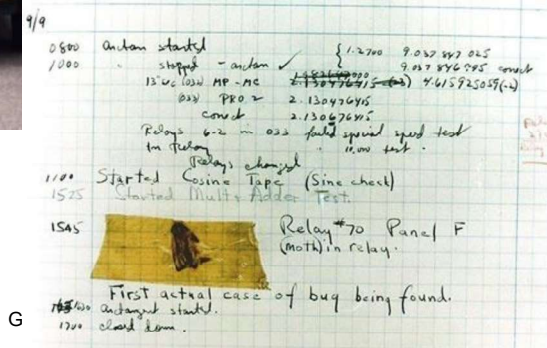 9/9
0800 antan started { 1.2700 9.037 847 025
1000 " stopped - antan ✓ 9.037 846 995 conect
13"uc (032) MP - MC 4.615925059(-2)
(033) PRO 2 2.130476415
conect 2.130676415
Relays 6-2 in 033 failed special speed test
in relay " 10.000 test.
Relays changed
1100 Started Cosine Tape (Sine check)
1525 Started Mult+ Adder Test.
1545 Relay #70 Panel F
(moth) in relay.
First actual case of bug being found.
1630 antangent started.
1700 closed down.
G